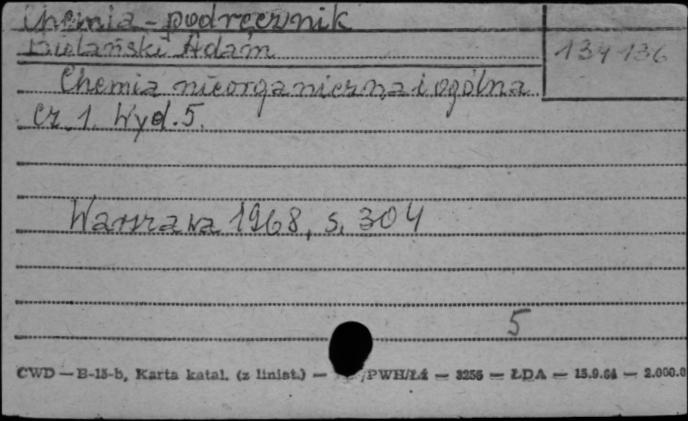 Chemia - podręcznik
Bielański Adam
134 136
Chemia nieorganiczna i ogólna
Cz. 1. Wyd. 5.
Warszawa 1968, s. 304
5
CWD — B-15-b, Karta katal. (z liniat.) — /PWH/Łź — 3256 — ŁDA — 15.9.64 — 2.000.0